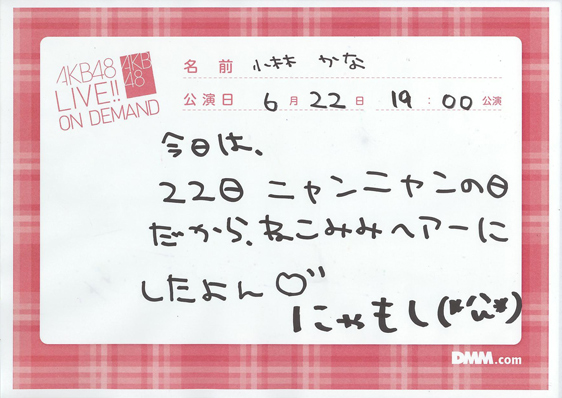 AKB48
LIVE!!
ON DEMAND
AKB
48
名前 小林 かな
公演日 6月22日 19:00公演
今日は、
22日 ニャンニャンの日
だから、ねこみみヘアーに
したよん♡"
にゃもし(*´ω`*)
DMM.com